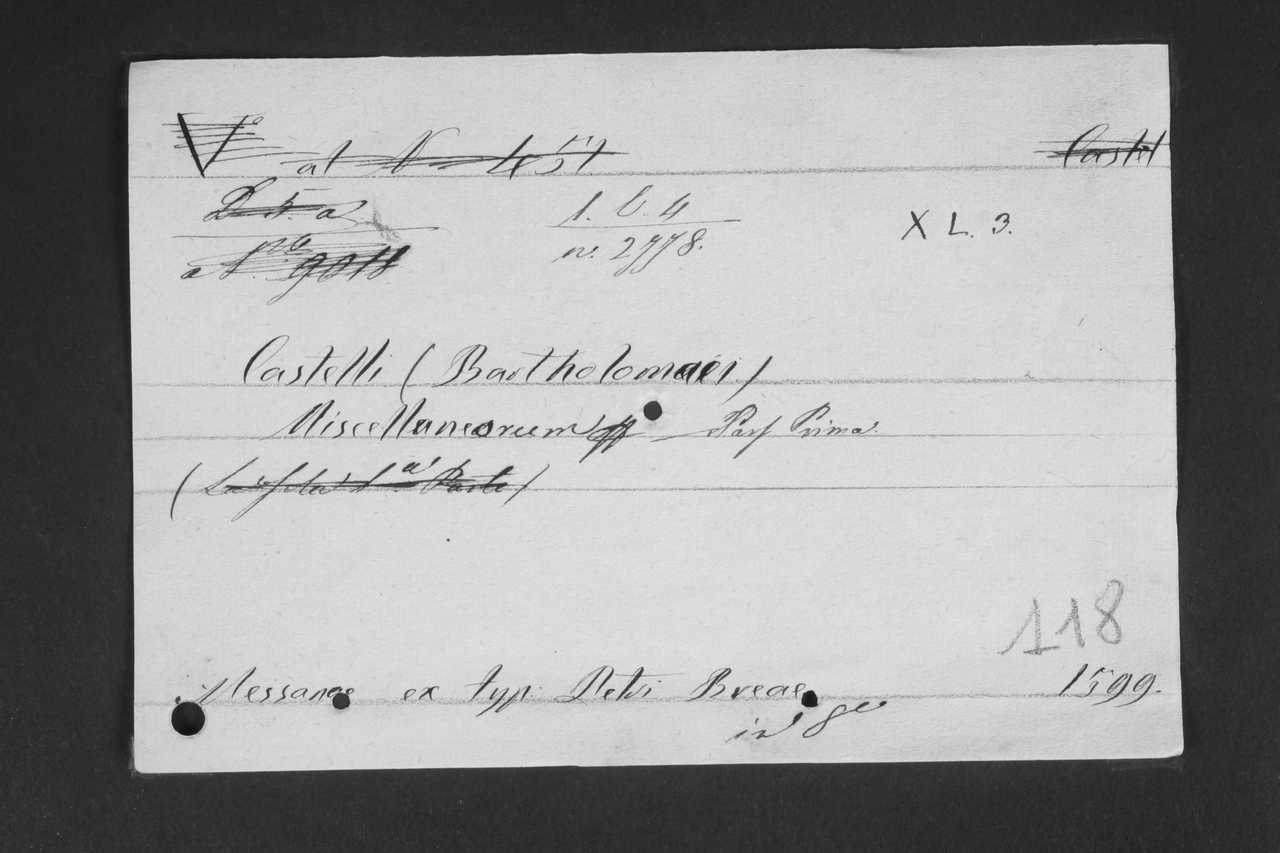 V° at N° 451. Castel
1. C. 4
n. 2778.
X L. 3.
Castelli (Bartholomaei)
Miscellaneorum Pars Prima.
118
Messanae ex typ. Petri Breae 1599.
in 8°